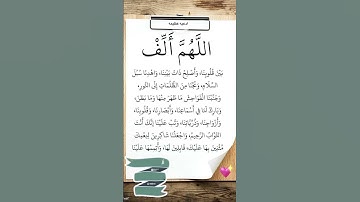 أدعية عظيمة
اللَّهُمَّ أَلِّفْ
بَيْنَ قُلُوبِنَا، وَأَصْلِحْ ذَاتَ بَيْنِنَا، وَاهْدِنَا سُبُلَ
السَّلَامِ، وَنَجِّنَا مِنَ الظُّلُمَاتِ إِلَى النُّورِ،
وَجَنِّبْنَا الْفَوَاحِشَ مَا ظَهَرَ مِنْهَا وَمَا بَطَنَ،
وَبَارِكْ لَنَا فِي أَسْمَاعِنَا، وَأَبْصَارِنَا، وَقُلُوبِنَا،
وَأَزْوَاجِنَا، وَذُرِّيَّاتِنَا، وَتُبْ عَلَيْنَا إِنَّكَ أَنْتَ
التَّوَّابُ الرَّحِيمُ، وَاجْعَلْنَا شَاكِرِينَ لِنِعْمَتِكَ
مُثْنِينَ بِهَا عَلَيْكَ، قَابِلِينَ لَهَا، وَأَتْمِمْهَا عَلَيْنَا